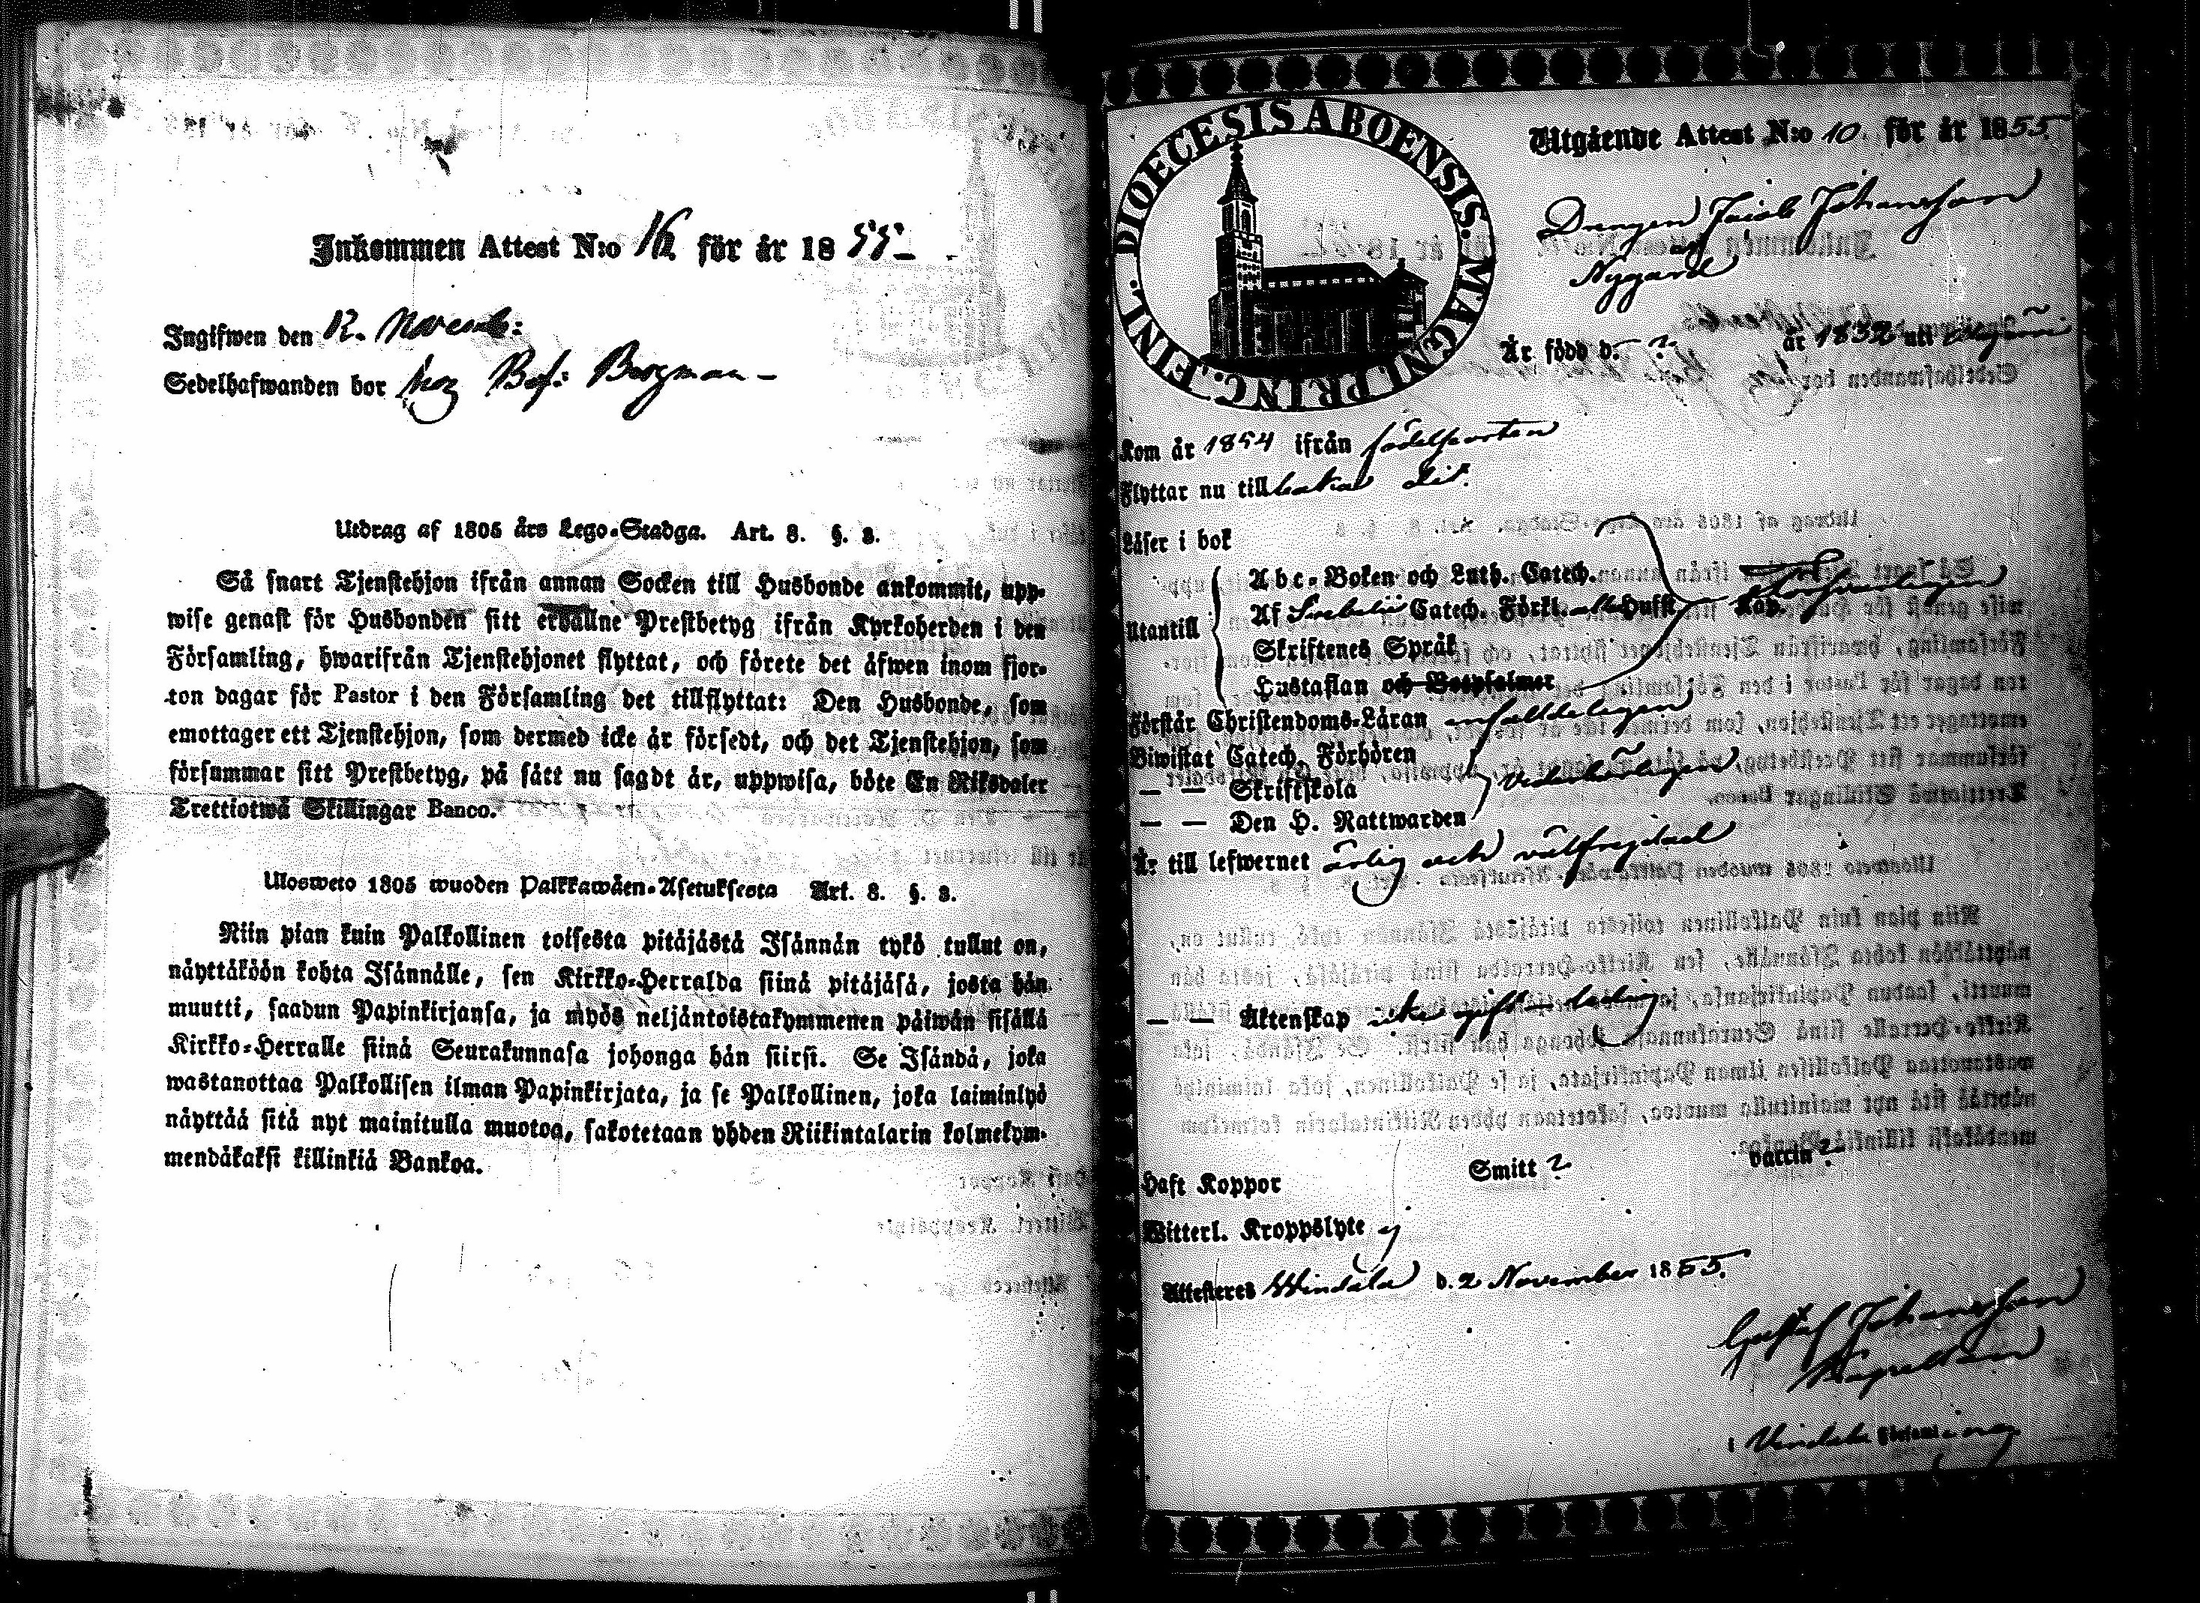 Inkommen Attest N:o 16 för år 1855
Ingifwen den 12. Novemb:
Sedelhafwanden bor hos Bef: Bergman
Utdrag af 1805 års Lego-Stadga. Art. 8. §. 3.
Så snart Tjenstehjon ifrån annan Socken till Husbonde ankommit, upp-
wise genast för Husbonden sitt erhållne Prestbetyg ifrån Kyrkoherden i den
Församling, hwarifrån Tjenstehjonet flyttat, och förete det äfwen inom fjor-
ton dagar för Pastor i den Församling det tillflyttat: Den Husbonde, som
emottager ett Tjenstehjon, som dermed icke är försedt, och det Tjenstehjon, som
försummar sitt Prestbetyg, på sätt nu sagdt är, uppwisa, böte En Riksdaler
Trettiotwå Skillingar Banco.
Ulosweto 1805 wuoden Palkkawäen-Asetuksesta Art. 8. §. 3.
Niin pian kuin Palkollinen toisesta pitäjästä Isännän tykö tullut on,
näyttäköön kohta Isännälle, sen Kirkko-Herralda siinä pitäjäsä, josta hän
muutti, saadun Papinkirjansa, ja myös neljäntoistakymmenen päiwän sisällä
Kirkko-Herralle siinä Seurakunnasa johonga hän siirsi. Se Isändä, joka
wastanottaa Palkollisen ilman Papinkirjata, ja se Palkollinen, joka laiminlyö
näyttää sitä nyt mainitulla muotoa, sakotetaan yhden Riikintalarin kolmekym-
mendäkaksi killinkiä Bankoa.
DIOECESIS ABOENSIS. MAGNI PRINC. FINL.
Utgående Attest N:o 10. för år 1855.
Drengen Jacob Johansson
af
Nygård
Är född d. ? år 1832 uti
Kom år 1854 ifrån födelseorten
Flyttar nu tillbaka dit.
Läser i bok
Utantill
Abc-Boken och Luth. Catech.
Af Svebelii Catech. Förkl. Hufst. Kap.
Skriftenes Språk
Hustaflan och Botpsalmer
Förstår Christendoms-Läran enfalldeligen
Biwistat Catech. Förhören
— — Skriftskola vederbörligen
— — Den H. Nattwarden
Är till lefwernet ärlig och välfrejdad
— — Äktenskap icke gift - ledig
Haft Koppor Smitt ? Vaccin ?
Witterl. Kroppslyte ej
Attesteres Hvindala d. 2 November 1855.
Gustaf Johansson
Kapellan
i Vindala